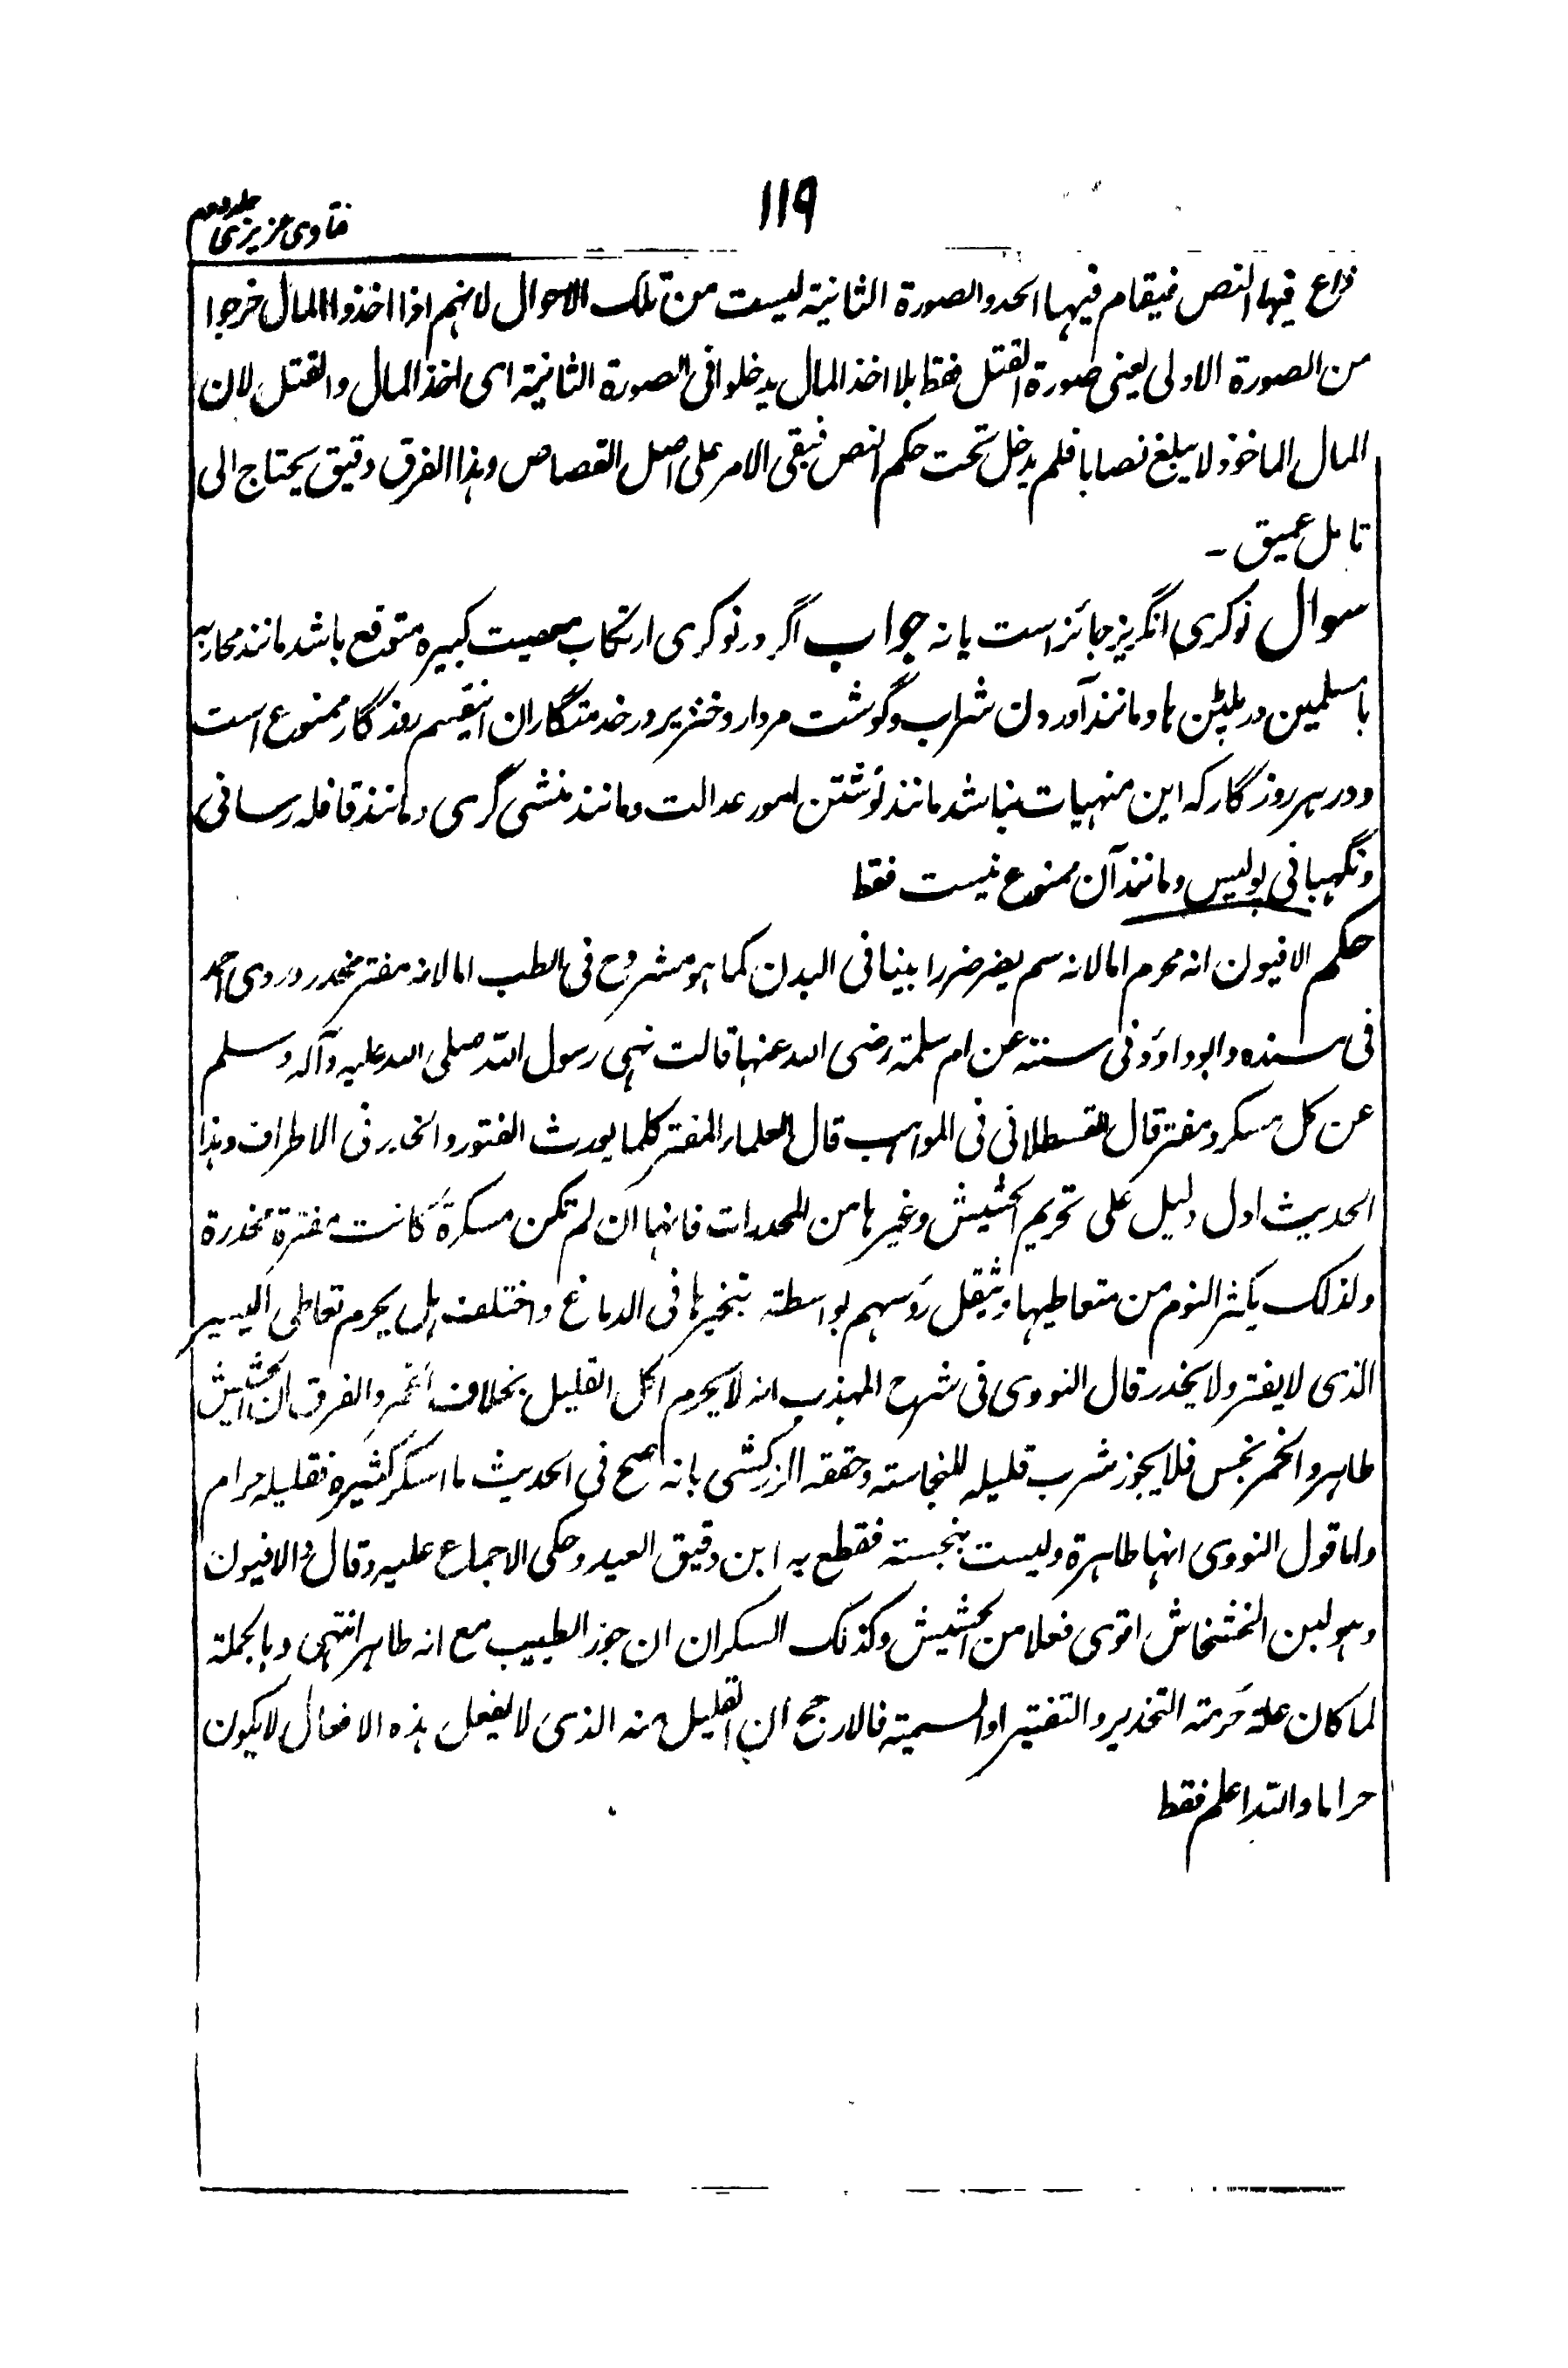 ۱۱۹
فتاوی عزیزی جلد دوم
فیها النص فیقام فیہا الحد والصورة الثانیة لیست من تلک الاحوال لانہم اذا اخذوا المال خرجوا
من الصورة الاولی یعنی صورة القتل فقط بلا اخذ المال یدخلوا فی الصورة الثانیة ای اخذ المال والقتل لان
المال الماخوذ لا یبلغ نصابا فلم یدخل تحت حکم النص فبقی الامر علی اصل القصاص وہذا الفرق دقیق یحتاج الی
تامل عمیق ۔
سوال نوکری انگریز جائز است یا نہ جواب اگر در نوکری ارتکاب معصیت کبیرہ متوقع باشد مانند محاربہ
با مسلمین در پلٹن ہا و مانند آوردن شراب و گوشت مردار و خنزیر در خدمتگاران اینقسم روزگار ممنوع است
و در ہر روزگار کہ این منہیات نباشد مانند نوشتن امور عدالت و مانند منشی گری و مانند قافلہ رسانی
و نگہبانی پولیس و مانند آن ممنوع نیست فقط
حکم الافیون انہ محرم اما لانہ سم یضر ضررا بینا فی البدن کما ہو مشروح فی الطب اما لانہ مفتر مخدر و روی احمد
فی مسندہ و ابو داؤد فی سننہ عن ام سلمة رضی اللہ عنہا قالت نہی رسول اللہ صلی اللہ علیہ و آلہ وسلم
عن کل مسکر و مفتر قال القسطلانی فی المواہب قال العلماء المفتر کلما یورث الفتور والخدر فی الاطراف وہذا
الحدیث اول دلیل علی تحریم الحشیش وغیرہا من المخدرات فانہا ان لم تکن مسکرة کانت مفترة مخدرة
ولذلک یکثر النوم من متعاطیہا و یثقل رؤسہم بواسطتہ تبخیرہا فی الدماغ واختلف ہل یحرم تعاطی الیسیر
الذی لا یفتر ولا یخدر قال النووی فی شرح المہذب انہ لا یحرم اکل القلیل بخلاف الخمر والفرق ان الحشیش
طاہر والخمر نجس فلا یجوز شرب قلیلہ للنجاستہ وحققہ الزرکشی بانہ صح فی الحدیث ما اسکر کثیرہ فقلیلہ حرام
واما قول النووی انہا طاہرة ولیست بنجستہ فقطع بہ ابن دقیق العید وحکی الاجماع علیہ وقال والافیون
وہو لبن الخشخاش اقوی فعلا من الحشیش وکذلک السکران ان جوز الطبیب مع انہ طاہر انتہی و بالجملة
لما کان علة حرمتہ التخدیر والتفتیر او السمیتہ فالارجح ان القلیل منہ الذی لا یفعل ہذہ الافعال لا یکون
حراما واللہ اعلم فقط